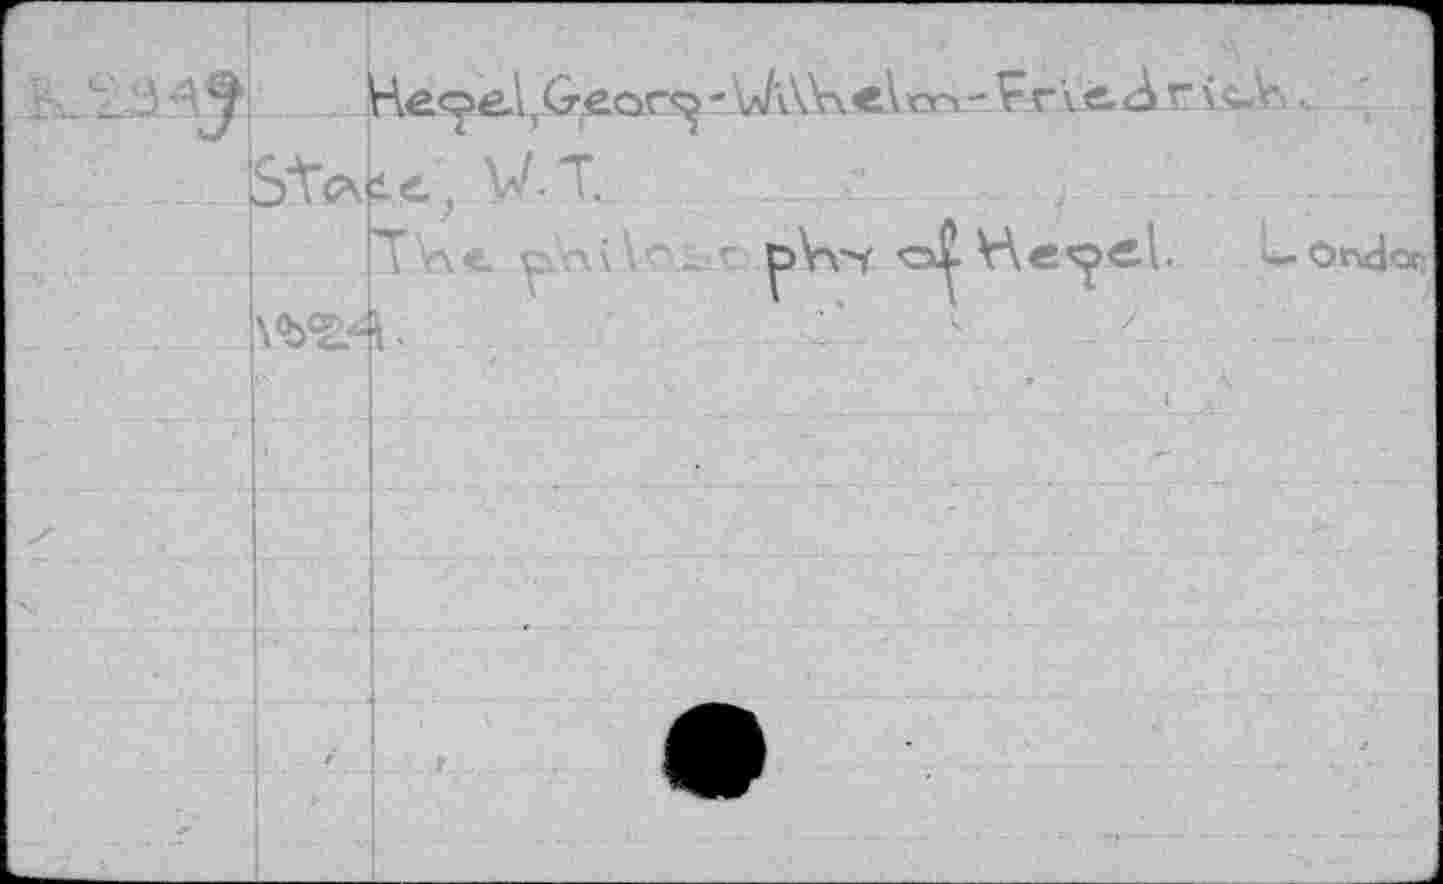 Hegel, Georg-Wilhelm-Friedrich.
Stace, W.T.
The philosophy of Hegel. London
1924.